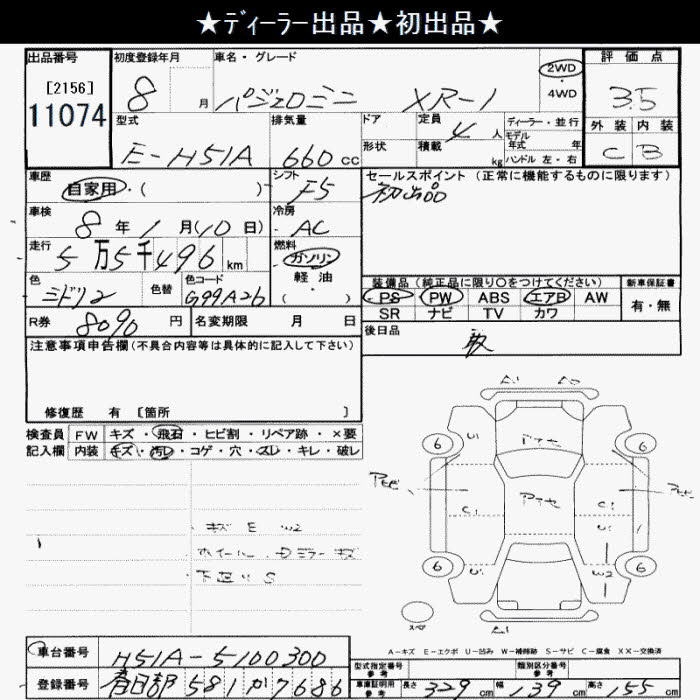 ★ディーラー出品★初出品★
出品番号 初度登録年月 車名・グレード 評価点
[2156] 8 月 パジェロミニ XR-1 2WD 3.5
11074 4WD
型式 排気量 ドア 定員 4 人 ディーラー・並行 外装 内装
E-H51A 660 cc 形状 積載 kg モデル年式 年 C B
ハンドル 左・右
車歴 シフト セールスポイント(正常に機能するものに限ります)
自家用・( ) F5 初出品
車検 冷房
8 年 1 月(10 日) AC
走行 燃料
5万5千496 km ガソリン・軽油
色 色替 色コード ( )
ミドリ2 G99A26
装備品(純正品に限り○をつけてください) 新車保証書
PS PW ABS エアB AW 有・無
SR ナビ TV カワ
R券 8090 円 名変期限 月 日 後日品
取
注意事項申告欄(不具合内容等は具体的に記入して下さい)
修復歴 有 [箇所 ]
検査員 FW キズ・飛石・ヒビ割・リペア跡・×要
記入欄 内装 キズ・汚レ・コゲ・穴・スレ・キレ・破レ
キズ E W2
ホイール、Dミラーキズ
下廻り S
A1
6 U1 アセ 6
アセ C1 アセ C1 U1
6 U1 W2 6
スペア A1
A-キズ E-エクボ U-凹み W-補修跡 S-サビ C-腐食 XX-交換済
車台番号 H51A-5100300
登録番号 春日部 581 か 7686
型式指定番号 参考 類別区分番号 参考
車庫証明用 参考 長さ 329 cm 幅 139 cm 高さ 155 cm